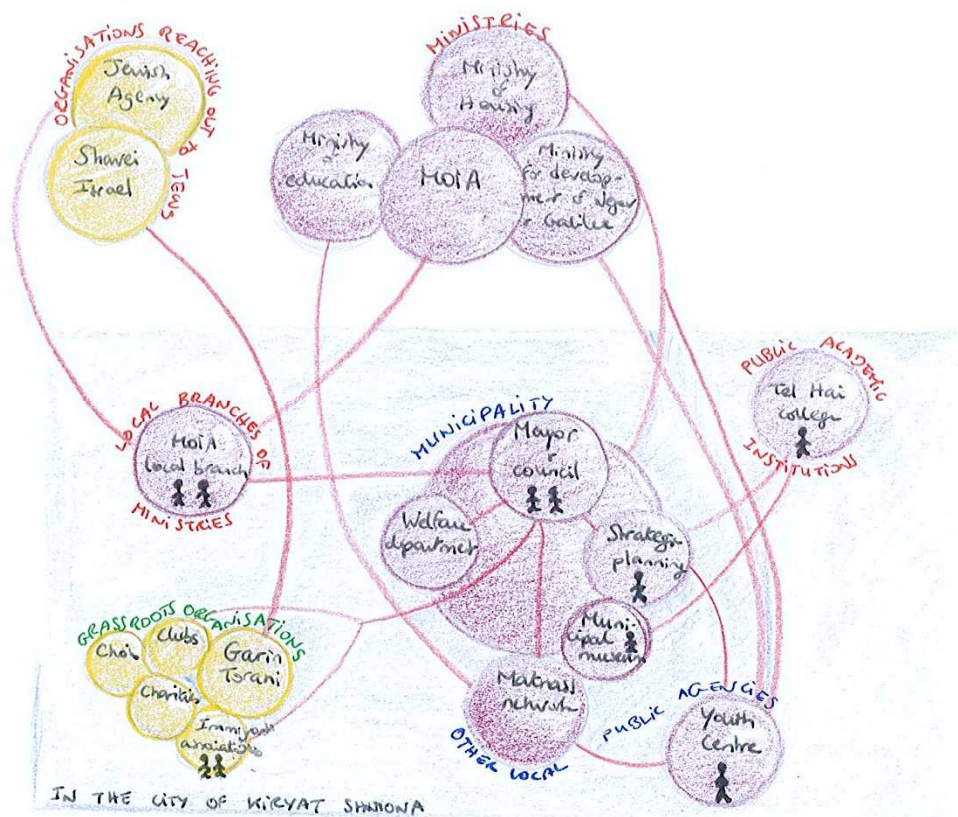 ORGANISATIONS REACHING OUT to JEWS
Jewish
Agency
Shavei
Israel
MINISTRIES
Ministry
of
Housing
Ministry
of
education
MOIA
Ministry
for develop-
ment of Negev
& Galilee
LOCAL BRANCHES OF
MOIA
Local branch
MINISTRIES
MUNICIPALITY
Mayor
+
council
Welfare
department
Strategic
planning
Muni-
cipal
museum
PUBLIC ACADEMIC
Tel Hai
college
INSTITUTIONS
GRASSROOTS ORGANISATIONS
Choir
Clubs
Garin
Torani
Charities
Immigrant
associations
Matnass
network
OTHER LOCAL
PUBLIC AGENCIES
Youth
Centre
IN THE CITY OF KIRYAT SHMONA